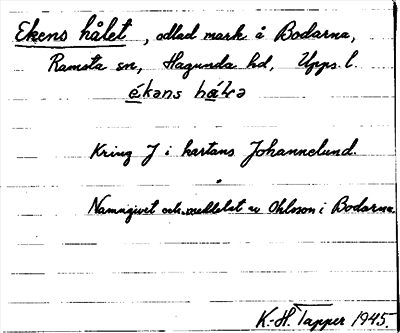 Ekens hålet, odlad mark å Bodarna,
Ramsta sn, Hagunda hd, Upps. l.
Kring J i kartans Johannelund.
Namngivet och meddelat av Ohlsson i Bodarna.
K.-H. Tapper 1945.